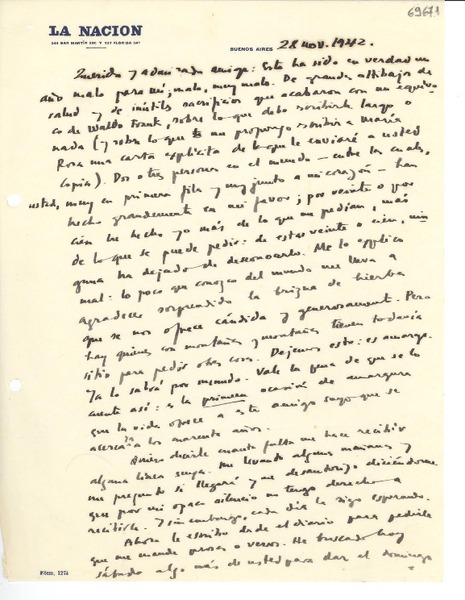 69671
LA NACION
344 SAN MARTIN 350 Y 557 FLORIDA 347
BUENOS AIRES 28 nov. 1942.
Querida y admirada amiga: Este ha sido en verdad un
año malo para mí; malo, muy malo. De grandes altibajos de
salud y de inútiles sacrificios que acabaron con un equívo
co de Waldo Frank, sobre lo que debo escribirle largo o
nada (y sobre lo que me propongo escribir a María
Rosa una carta explícita de la que le enviaré a usted
copia). Dos o tres personas en el mundo – entre las cuales,
usted, muy en primera fila y muy junto a mi corazón – han
hecho grandemente en mi favor; por veinte o por
cien he hecho yo más de lo que me pedían, más
de lo que se puede pedir: de estas veinte o cien, nin
guna ha dejado de desconocerlo. Me lo explico
mal: lo poco que conozco del mundo me lleva a
agradecer sorprendido la brizna de hierba
que se nos ofrece cándida y generosamente. Pero
hay quienes con montañas y montañas tienen todavía
sitio para pedir otras cosas. Dejemos esto: es amargo.
Ya lo sabrá por menudo. Vale la pena de que se lo
cuente así: es la primera ocasión de amargura
que la vida ofrece a este amigo suyo que se
acerca a los cuarenta años.
Quiero decirle cuanta falta me hace recibir
alguna línea suya. Me levanto algunas mañanas y
me pregunto si llegará y me desautorizo diciéndome
que por mi opaco silencio no tengo derecho a
recibirla. Y sin embargo, cada día la sigo esperando.
Ahora le escribo desde el diario para pedirle
que me mande prosas o versos. He buscado hoy
sábado algo más de usted para dar el domingo
Fórm. 1274